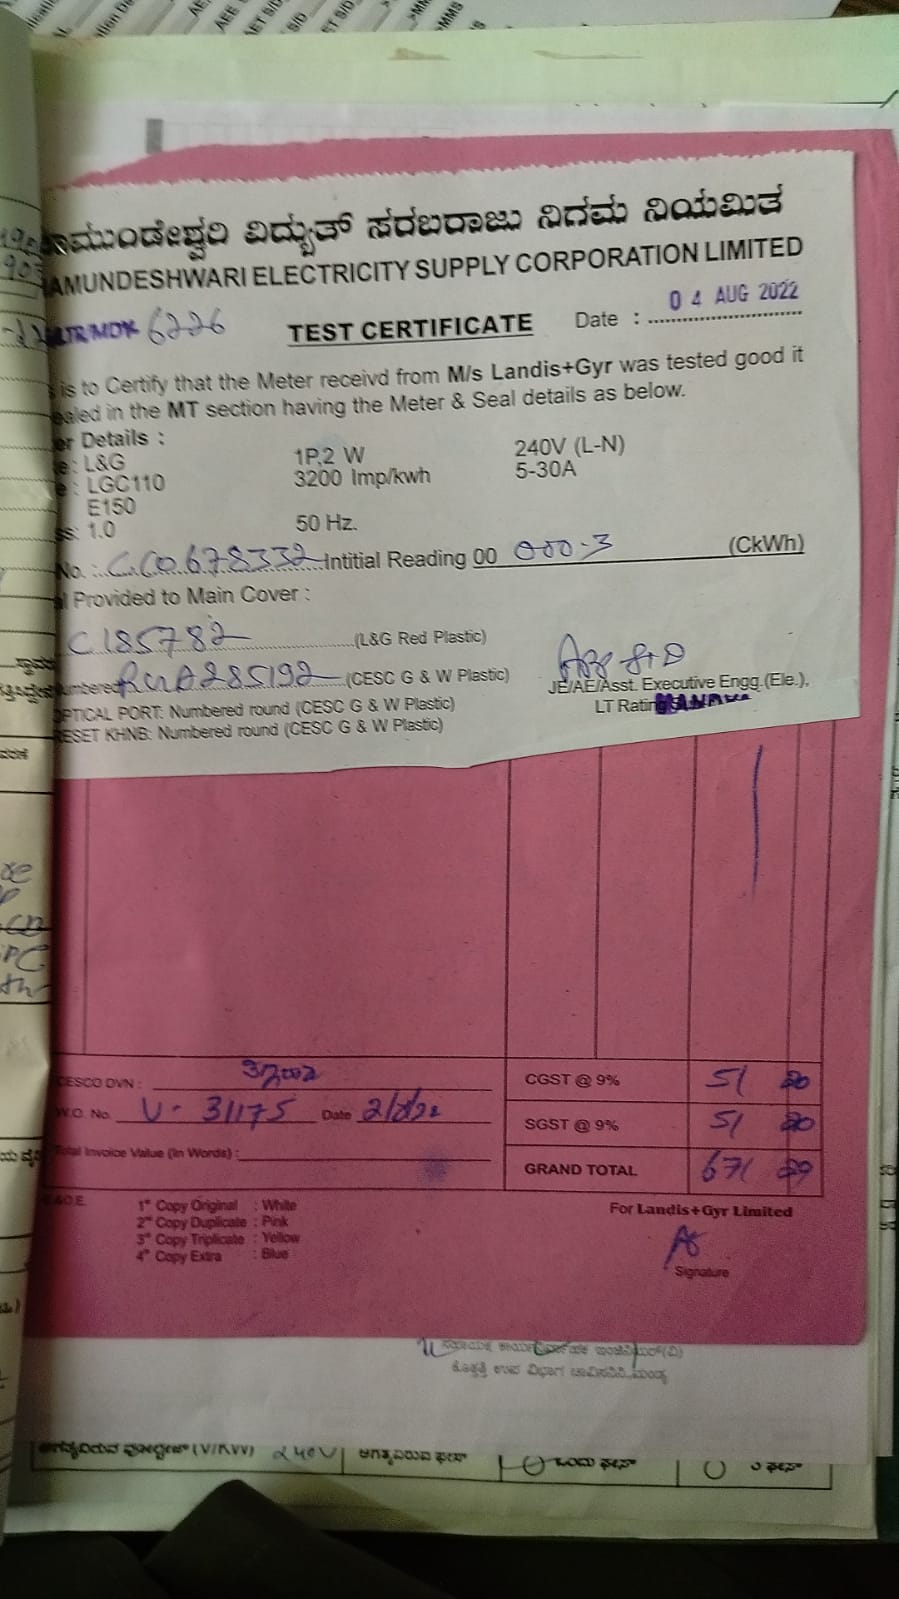 ಾಮುಂಡೇಶ್ವರಿ ವಿದ್ಯುತ್ ಸರಬರಾಜು ನಿಗಮ ನಿಯಮಿತ
AMUNDESHWARI ELECTRICITY SUPPLY CORPORATION LIMITED
LTR/MDY 6226 TEST CERTIFICATE Date : 04 AUG 2022
is to Certify that the Meter receivd from M/s Landis+Gyr was tested good it
ealed in the MT section having the Meter & Seal details as below.
er Details :
e : L&G 1P,2 W 240V (L-N)
e : LGC110 3200 Imp/kwh 5-30A
E150
ss: 1.0 50 Hz.
No. : CC0678332 Intitial Reading 00 000.3 (CkWh)
l Provided to Main Cover :
C185782 (L&G Red Plastic)
Numbered 285192 (CESC G & W Plastic)
JE/AE/Asst. Executive Engg.(Ele.),
OPTICAL PORT: Numbered round (CESC G & W Plastic)
LT Rating
RESET KHNB: Numbered round (CESC G & W Plastic)
CESCO DVN :
CGST @ 9% 51
W.O. No. U-31175 Date 2/8/22
SGST @ 9% 51
Total Invoice Value (In Words) :
GRAND TOTAL 671
E.&O.E.
1st Copy Original : White
2nd Copy Duplicate : Pink
3rd Copy Triplicate : Yellow
4th Copy Extra : Blue
For Landis+Gyr Limited
Signature
(V/KW) 240 ಒಂದು ಫೇಸ್ ೦ ೩ ಫೇಸ್